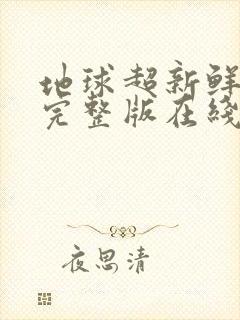 地球超新鲜
完整版在线
夜思清